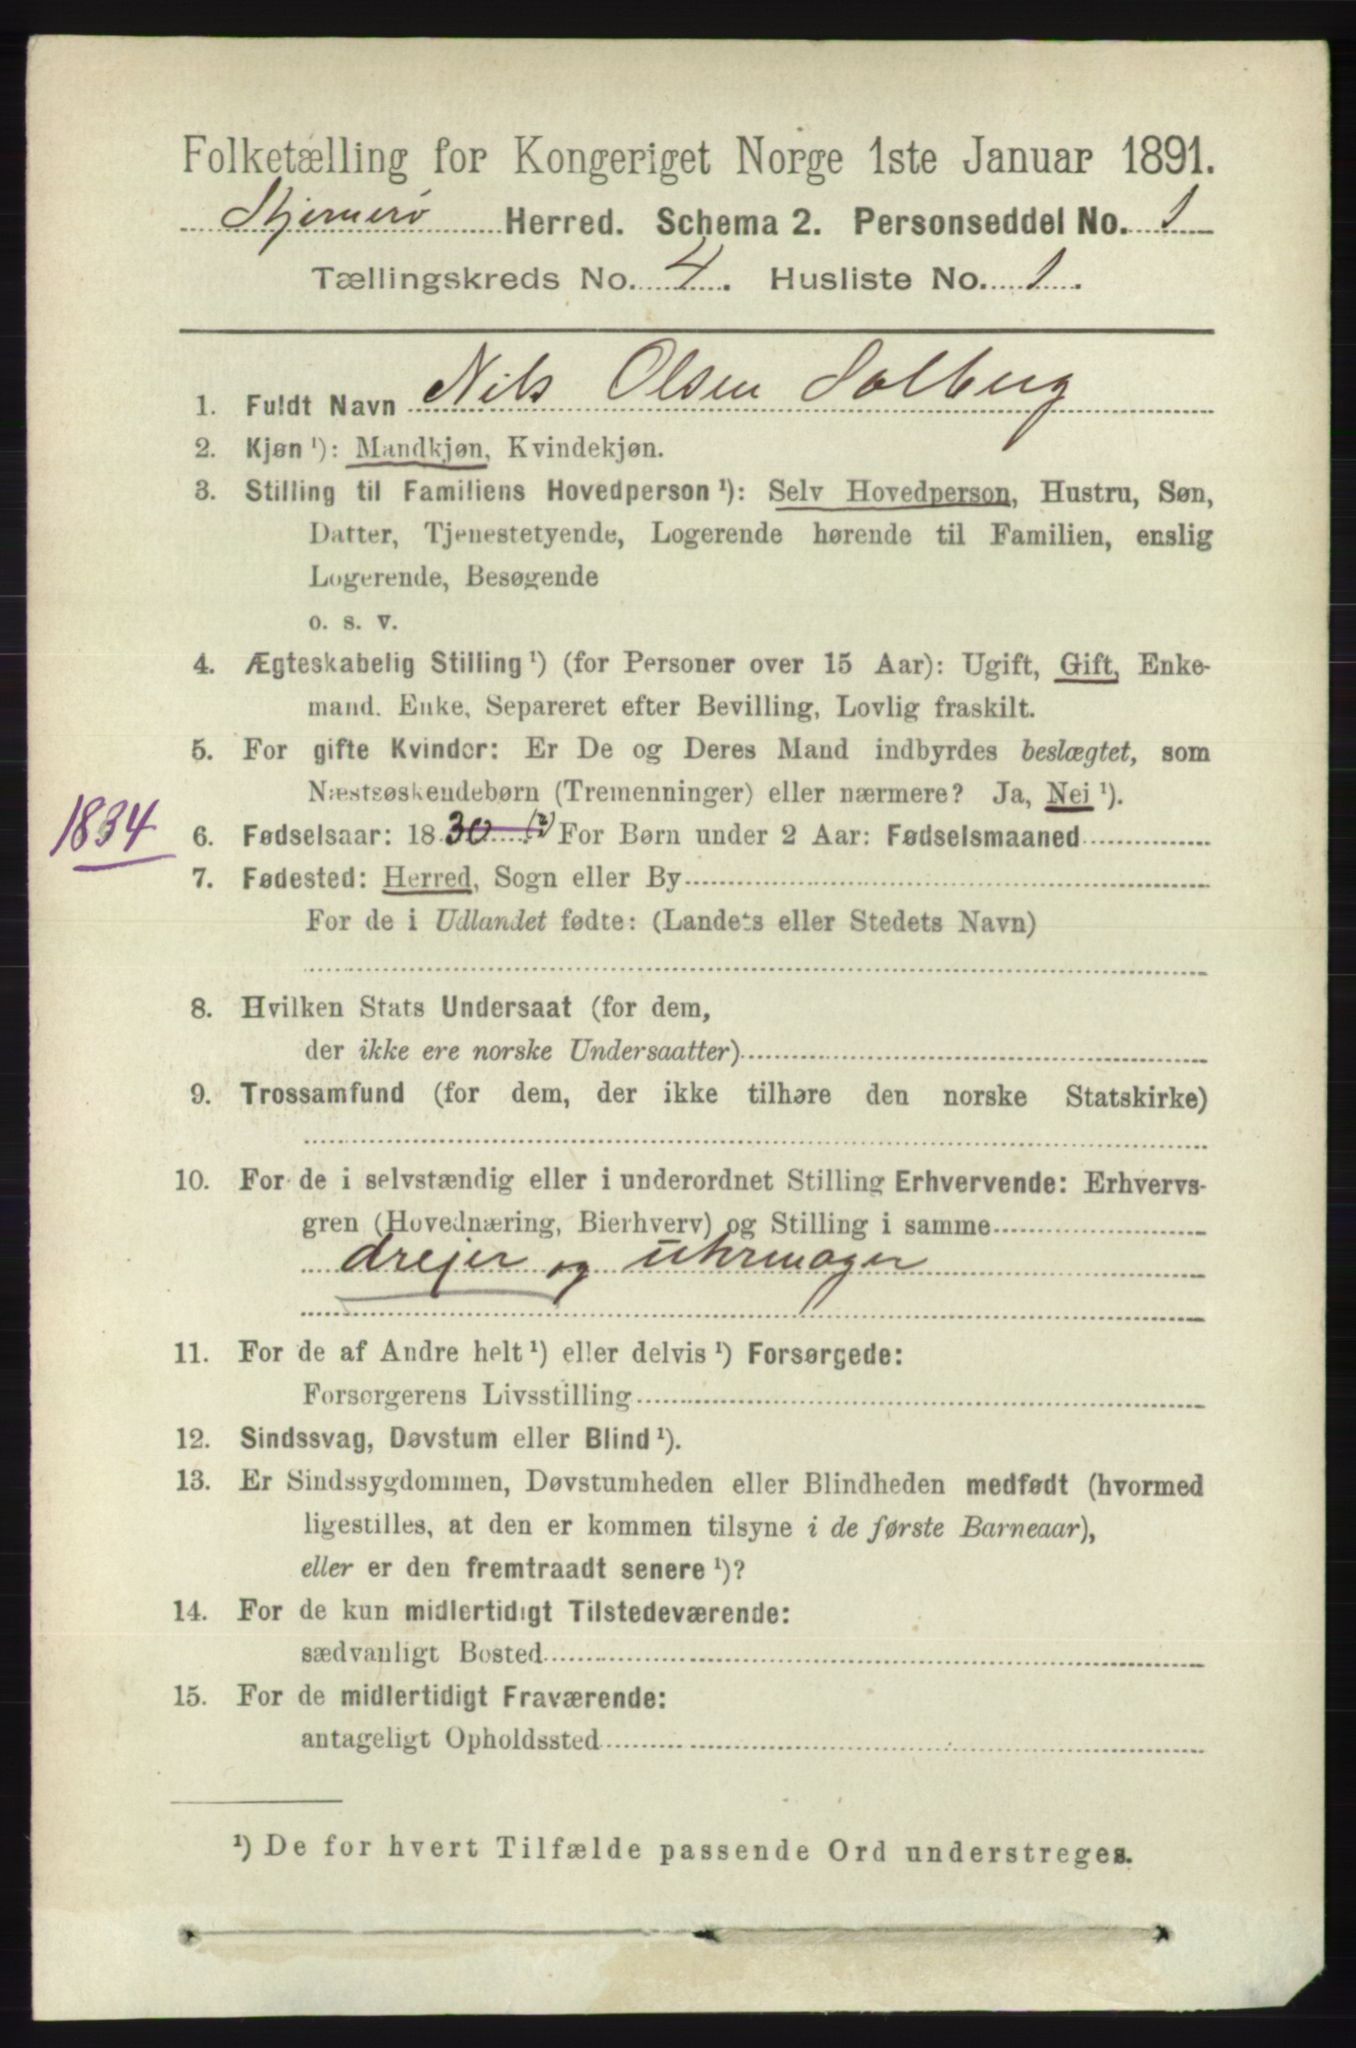 Folketælling for Kongeriget Norge 1ste Januar 1891.
Stjernerø Herred. Schema 2. Personseddel No. 1
Tællingskreds No. 4. Husliste No. 1.
1. Fuldt Navn Nils Olsen Solberg
2. Kjøn ¹): Mandkjøn, Kvindekjøn.
3. Stilling til Familiens Hovedperson ¹): Selv Hovedperson, Hustru, Søn,
Datter, Tjenestetyende, Logerende hørende til Familien, enslig
Logerende, Besøgende
o. s. v.
4. Ægteskabelig Stilling ¹) (for Personer over 15 Aar): Ugift, Gift, Enke-
mand. Enke, Separeret efter Bevilling, Lovlig fraskilt.
5. For gifte Kvinder: Er De og Deres Mand indbyrdes beslægtet, som
Næstsøskendebørn (Tremenninger) eller nærmere? Ja, Nei ¹).
1834 6. Fødselsaar: 1830 (?) For Børn under 2 Aar: Fødselsmaaned
7. Fødested: Herred, Sogn eller By
For de i Udlandet fødte: (Landets eller Stedets Navn)
8. Hvilken Stats Undersaat (for dem,
der ikke ere norske Undersaatter)
9. Trossamfund (for dem, der ikke tilhøre den norske Statskirke)
10. For de i selvstændig eller i underordnet Stilling Erhvervende: Erhvervs-
gren (Hovednæring, Bierhverv) og Stilling i samme
drejer og uhrmager
11. For de af Andre helt ¹) eller delvis ¹) Forsørgede:
Forsørgerens Livsstilling
12. Sindssvag, Døvstum eller Blind ¹).
13. Er Sindssygdommen, Døvstumheden eller Blindheden medfødt (hvormed
ligestilles, at den er kommen tilsyne i de første Barneaar),
eller er den fremtraadt senere ¹)?
14. For de kun midlertidigt Tilstedeværende:
sædvanligt Bosted
15. For de midlertidigt Fraværende:
antageligt Opholdssted
¹) De for hvert Tilfælde passende Ord understreges.